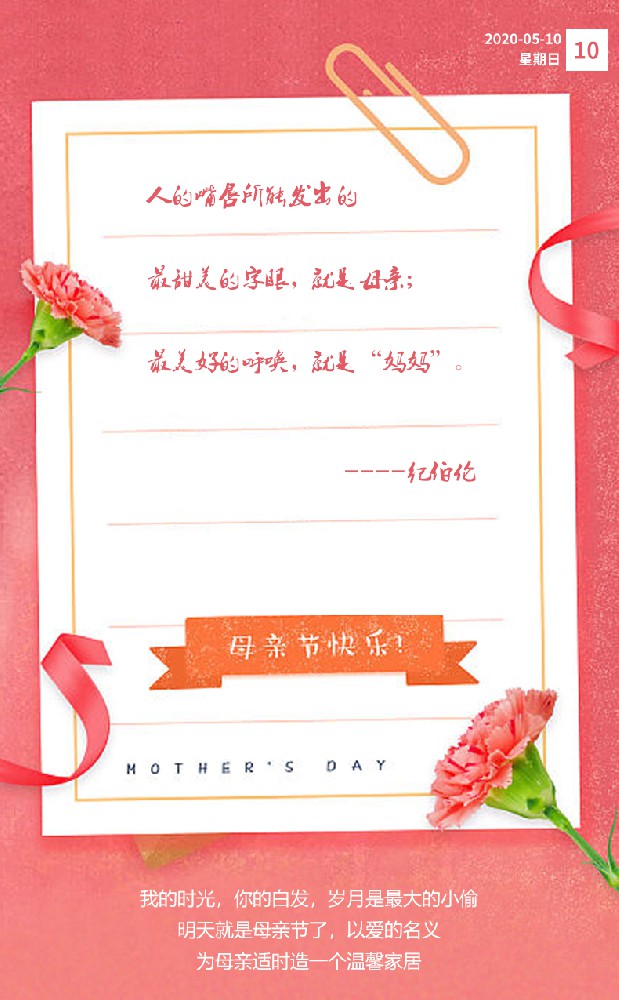 2020-05-10
星期日
10
人的嘴唇所能发出的
最甜美的字眼，就是母亲；
最美好的呼唤，就是“妈妈”。
----纪伯伦
母亲节快乐！
MOTHER'S DAY
我的时光，你的白发，岁月是最大的小偷
明天就是母亲节了，以爱的名义
为母亲适时造一个温馨家居